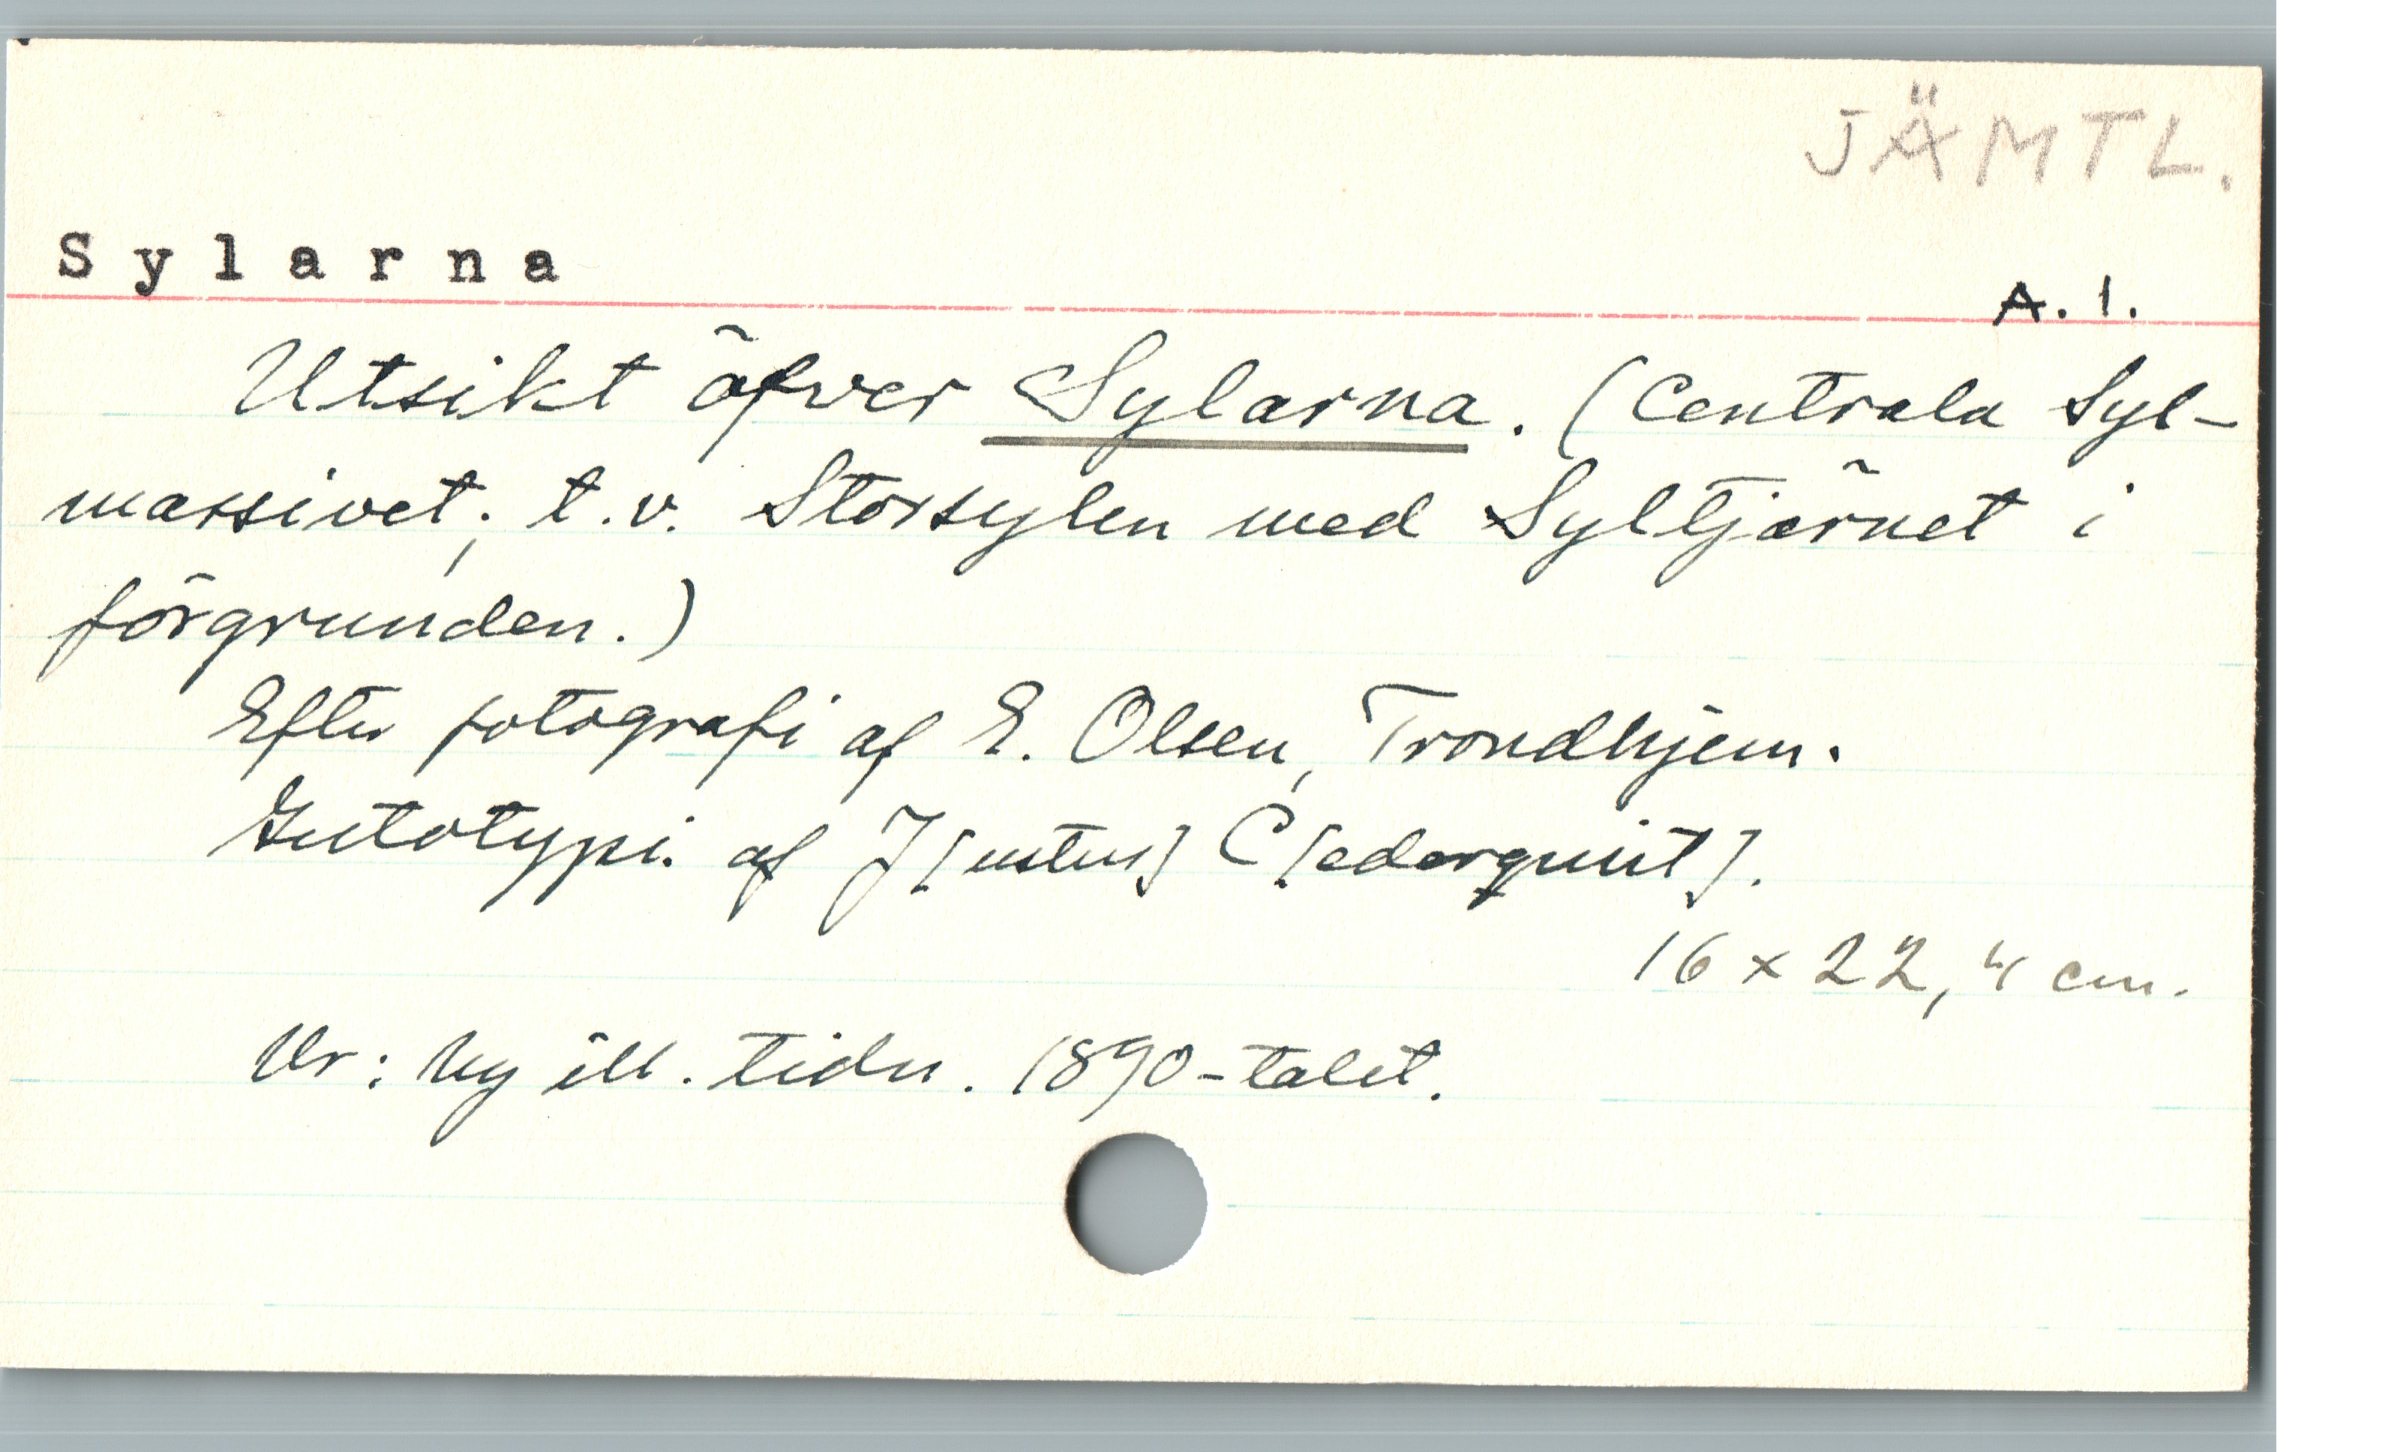 JÄMTL.
Sylarna
A. 1.
Utsikt öfver Sylarna. (Centrala Syl-
massivet; t.v. Storsylen med Syltjärnet i
förgrunden.)
Efter fotografi af E. Olsen, Trondhjem.
Autotypi. af J[ustus] C[ederquist].
16 x 22,4 cm.
Ur: Ny ill. tidn. 1890-talet.